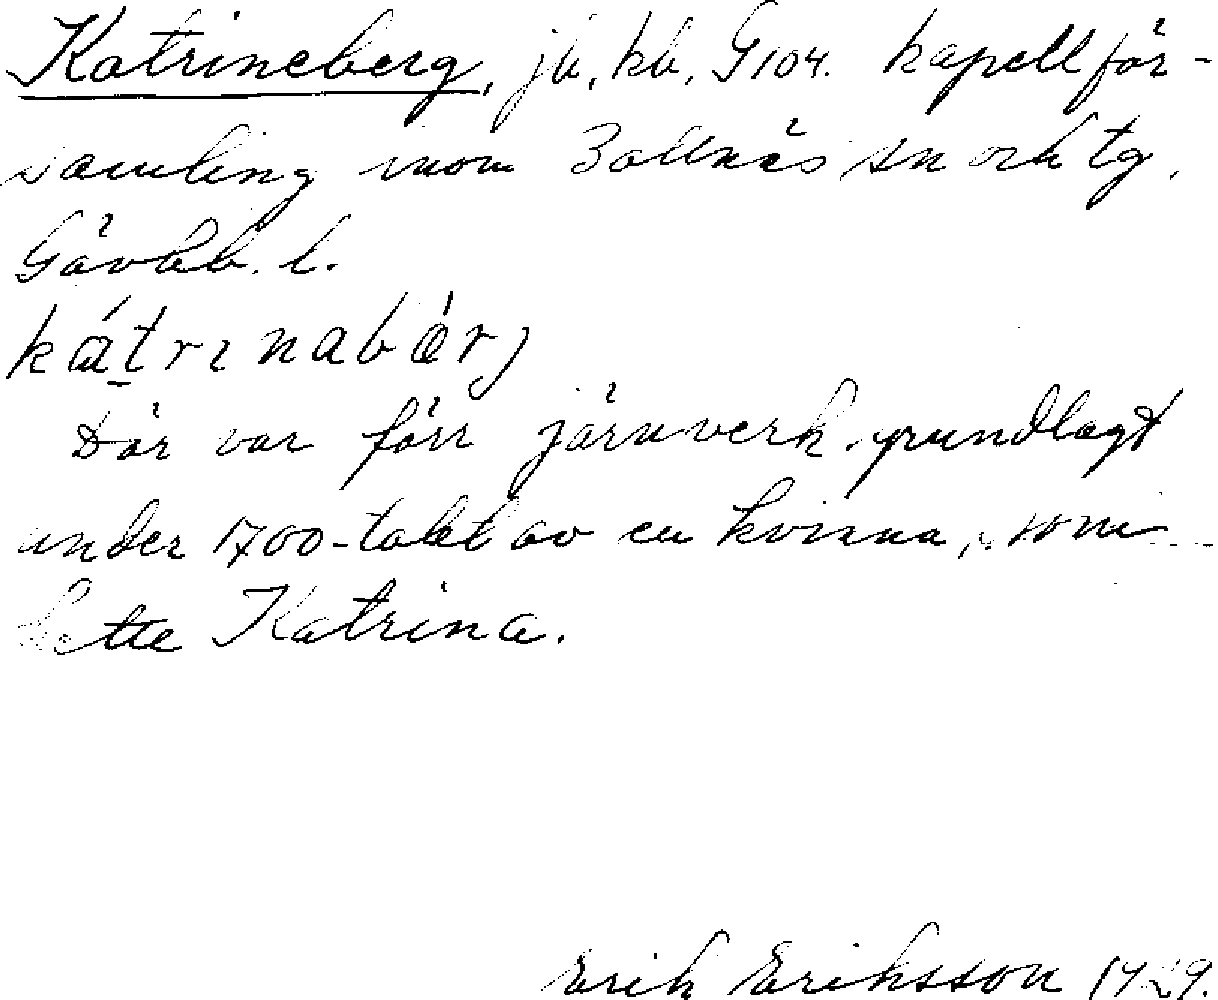 Katrineberg, jb, kb, G104. kapellför-
samling inom Bollnäs sn och tg,
Gävleb. l.
kátrinabärj
Där var förr järnverk, grundlagt
under 1700-talet av en kvinna, som
hette Katrina.
Erik Eriksson 1929.